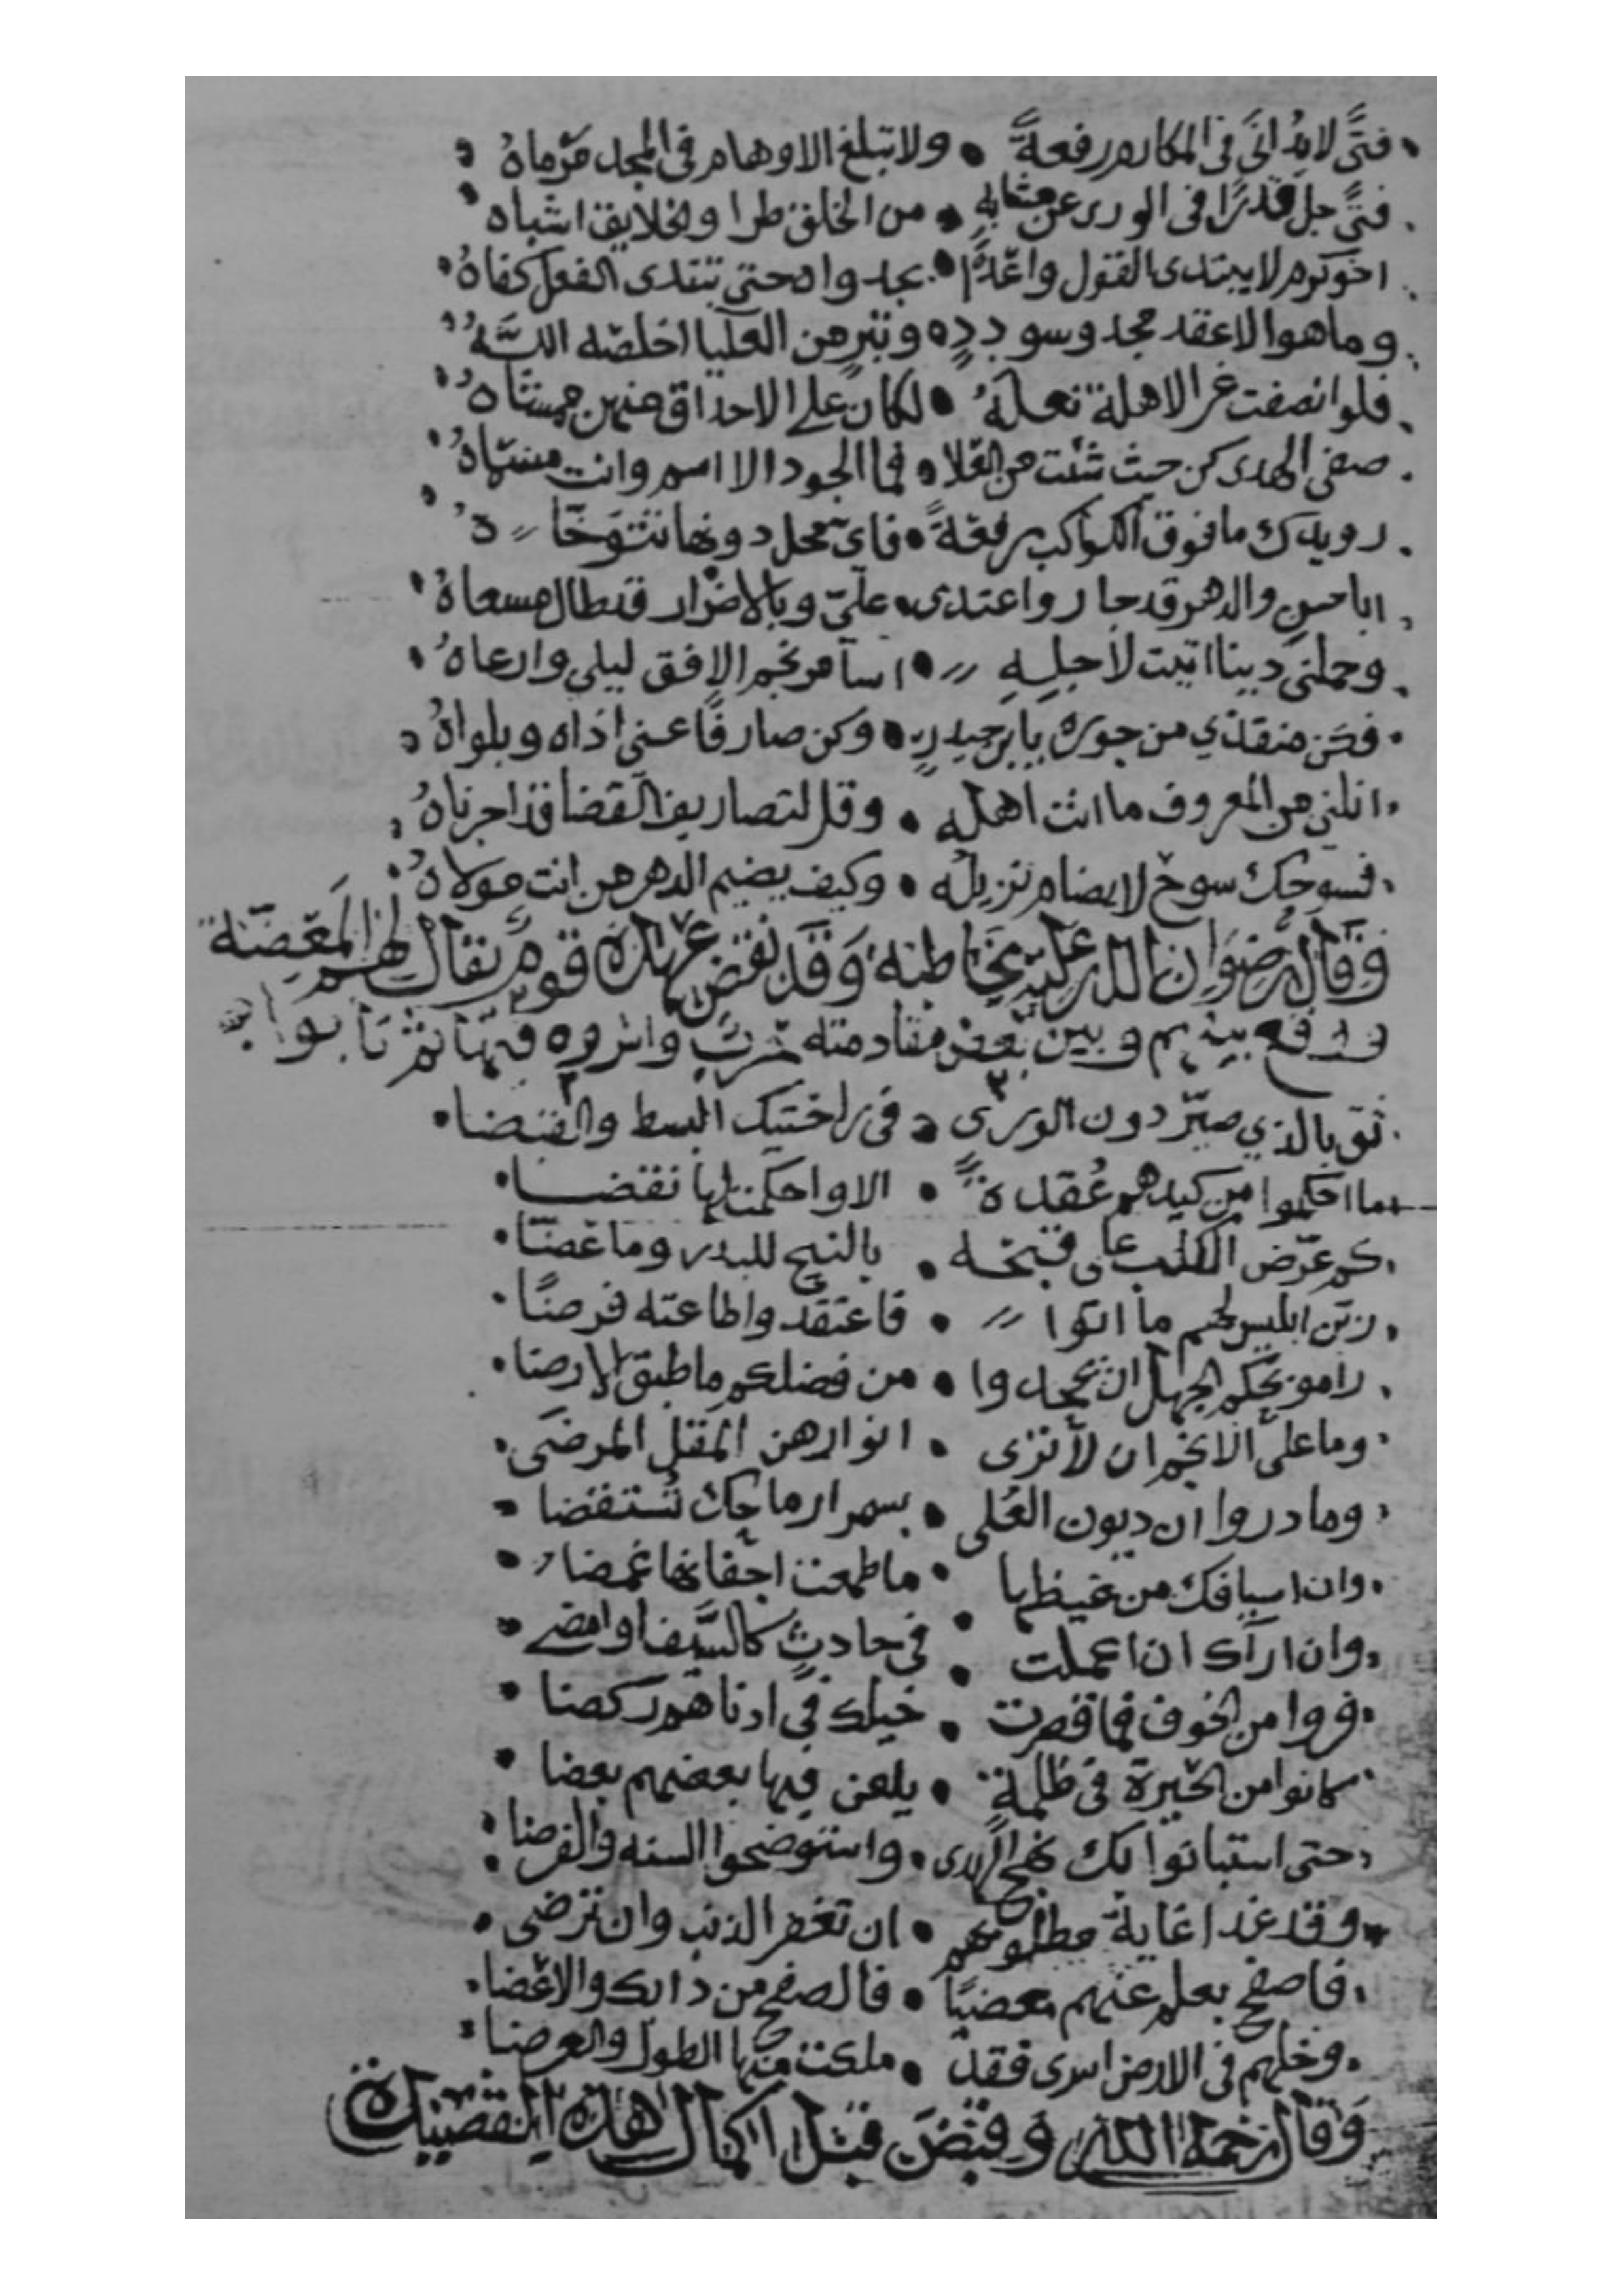 فتًى لا يُدانَى فى المكارم رفعةً • ولا تبلغ الاوهام فى المجد مرماهُ
فتًى جل قدرًا فى الورى عن مشابهٍ • من الخلق طرا والخلايق اشباه
اخو كرم لا يبتدى القول واعدًا • بجدواه حتى تبتدى الفعل كفاهُ
وما هو الا عقد مجد وسوددٍ • وتبرٍ من العليا اخلصه اللهُ
فلو انصفت غر الاهلة نعلهُ • لكان على الاحداق منهن ممشاهُ
صفى الهدى كن حيث شئت من العُلا • فما الجود الا اسم وانت مسمّاهُ
رويدك ما فوق الكواكب رفعةً • فاى محل دونها تتوخاهُ
ابا حسنٍ والدهر قد جار واعتدى • علىّ وبالاضرار قد طال مسعاهُ
وحملنى دينا ابيت لاجلهِ • اسامر نجم الافق ليلى وارعاهُ
فكن منقذي من جوره يا بن حيدرٍ • وكن صارفًا عنى اذاه وبلواهُ
انلنى من المعروف ما انت اهله • وقل لتصاريف القضا قد اجرناهُ
فسوحك سوح لا يضام نزيله • وكيف يضيم الدهر من انت مولاهُ
وقال رضوان الله عليه يخاطبه وقد نقض عهده قوم يقال لهم المعضّة
ووقع بينهم وبين بعض مقادمته حرب واثروه فيها ثم تابوا
ثق بالذي صيّر دون الورى • فى راحتيك البسط والقبضا
ما احكموا من كيدهم عُقدةً • الا واحكمنا لها نقضا
كم عرّض الكلب على قبحه • بالنبح للبدر وما غضّا
زين ابليس لهم ما اتوا • فاعتقدوا طاعته فرضًا
راموا بحكم الجهل ان يجحدوا • من فضلكم ما طبق الارضا
وما على الانجم ان لا ترى • انوارهن المقل المرضَى
وما دروا ان ديون العُلى • بسمر ارماحك تُستقضا
وان اسيافك من غيظها • ما طمعت اجفانها غمضا
وان ارآك ان اعملت • فى حادثٍ كالسَّيف او امضى
فروا من الخوف فما قصرت • خيلك فى ادناهم ركضا
كانوا من الحيرة فى ظلمةٍ • يلعن فيها بعضهم بعضا
حتى استبانوا بك نهج الهدى • واستوضحوا السنه والفرضا
وقد غدا غاية مطلوبهم • ان تغفر الذنب وان ترضى
فاصفح بعلم عنهم مغضيًا • فالصفح من دابك والاغضا
وخلهم فى الارض اسرى فقد • ملكت منها الطول والعرضا
وقال رحمه الله وقبض قبل اكمال هذه القصيدة